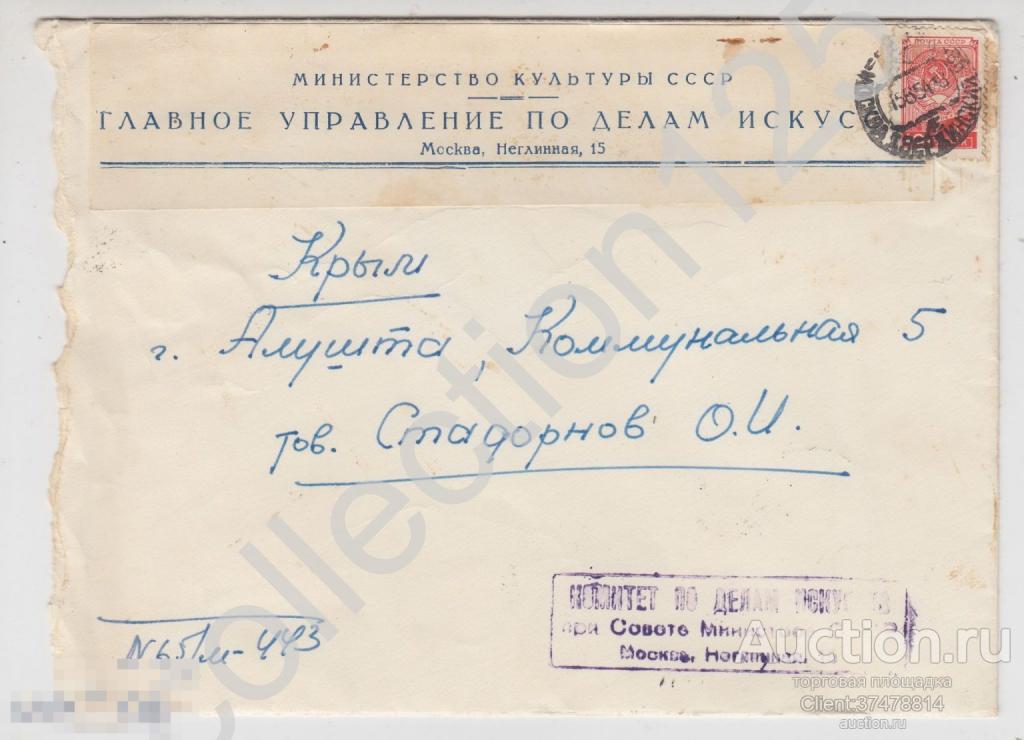 МИНИСТЕРСТВО КУЛЬТУРЫ СССР
ГЛАВНОЕ УПРАВЛЕНИЕ ПО ДЕЛАМ ИСКУС
Москва, Неглинная, 15
ПОЧТА СССР
Крым
г. Алушта, Коммунальная 5
тов. Стадорнов О.И.
КОМИТЕТ ПО ДЕЛАМ
при Совете
Москва, Неглинная,
Collection 125
Auction.ru
торговая площадка
Client:37478814
auction.ru